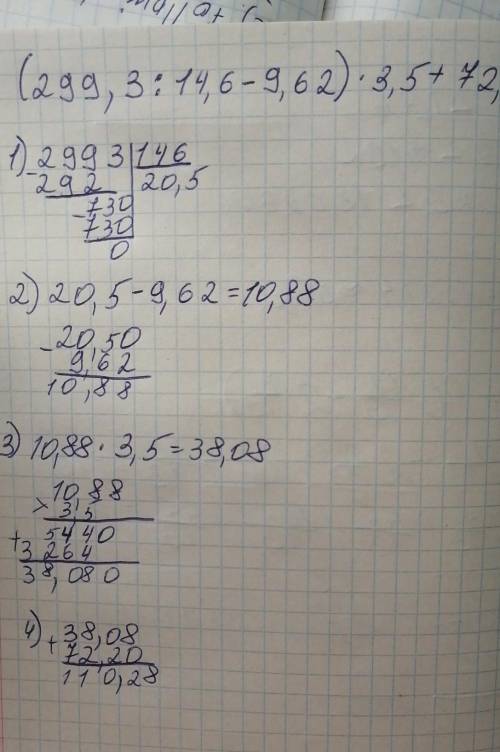 (299,3:14,6-9,62)·3,5+72,
1) -2993 | 146
292 20,5
-730
730
0
2) 20,5-9,62=10,88
-20,50
9,62
10,88
3) 10,88·3,5=38,08
×10,88
3,5
+5440
3264
38,080
4) +38,08
72,20
110,28